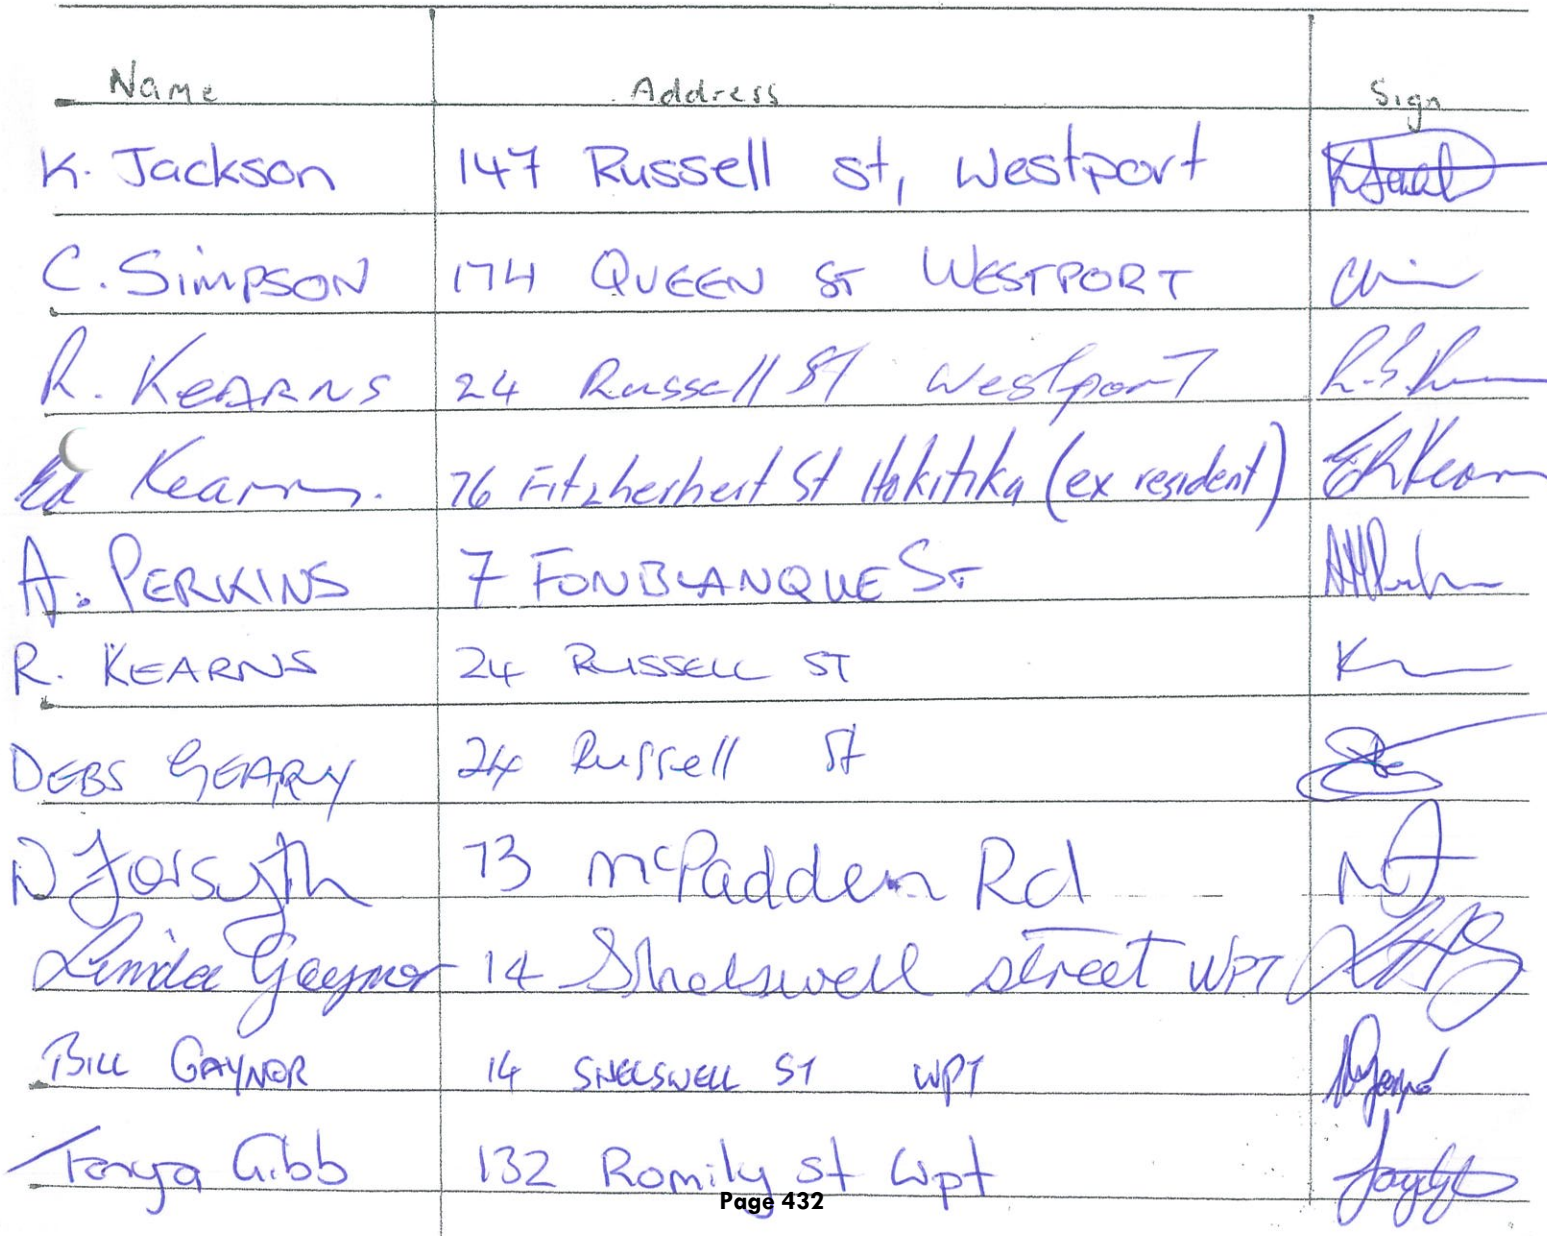 Name Address Sign
K. Jackson 147 Russell st, Westport
C. SimPSON 174 QUEEN ST WESTPORT
R. KEARNS 24 Russell St Westport
Ed Kearns. 76 Fitzherbert St Hokitika (ex resident) EKearn
A. PERKINS 7 FONBLANQUE ST
R. KEARNS 24 RUSSELL ST
DEBS GEARY 24 Russell St
N Forsyth 73 McPadden Rd
Linda Gaynor 14 Shelswell street WPT
BILL GAYNOR 14 SHELSWELL ST WPT
Tanya Gibb 132 Romily st Wpt
Page 432